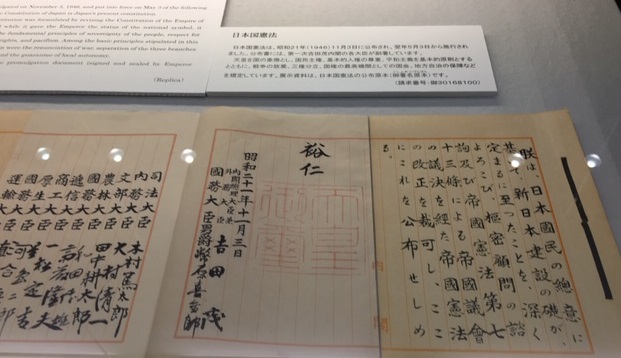 igned on November 3, 1946, and put into force on May 3 of the following
Constitution of Japan is Japan's present constitution.
stitution was formulated by revising the Constitution of the Empire of
while it gave the Emperor the status of the national symbol, it
he fundamental principles of sovereignty of the people, respect for
rights, and pacifism. Among the basic principles stipulated in this
n were the renunciation of war, separation of the three branches
and the guarantee of local autonomy.
e promulgation document (signed and sealed by Emperor
(Replica)
日本国憲法
日本国憲法は、昭和21年(1946)11月3日に公布され、翌年5月3日から施行され
ました。公布書には、第一次吉田茂内閣の各大臣が副署しています。
天皇を国の象徴とし、国民主権、基本的人権の尊重、平和主義を基本的原則とする
とともに、戦争の放棄、三権分立、国権の最高機関としての国会、地方自治の保障など
を規定しています。展示資料は、日本国憲法の公布原本(御署名原本)です。
(請求番号:御30168100)
朕は、日本国民の總意に
基いて、新日本建設の礎が、
定まるに至つたことを、深く
よろこび、樞密顧問の諮
詢及び帝國憲法第七
十三條による帝國議會
の議決を経た帝國憲法
の改正を裁可し、ここ
にこれを公布せしめ
る。
裕仁
昭和二十一年十一月三日
内閣総理大臣兼
外務大臣
吉田茂
國務大臣 男爵 幣原喜重郎
司法大臣 木村篤太郎
内務大臣 大村清一
文部大臣 田中耕太郎
農林大臣 和田博雄
國務大臣
逓信大臣 一松定吉
商工大臣
厚生大臣 河合良成
國務大臣
運輸大臣